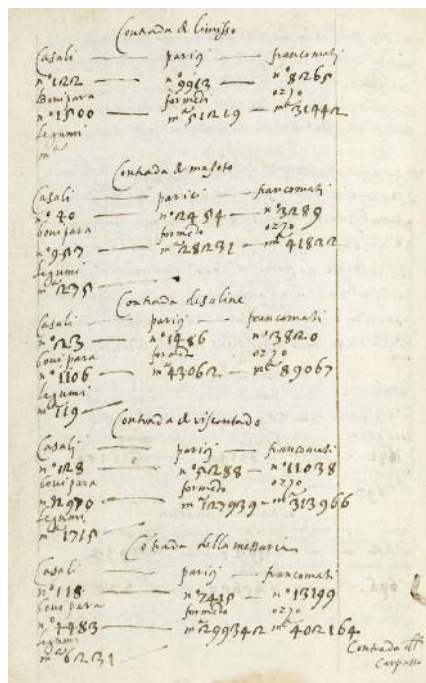 Contrada de limisso
Casali — parigi — francomati
n° 122 — n° 9913 — n° 8265
Boui para formeto orzo
n° 1500 — mª 51219 — mª 31442
legumi
mª
Contrada de mafoto
Casali — parici — francomati
n° 40 — n° 2454 — n° 3289
boui para formeto orzo
n° 957 — mª 28231 — mª 41822
legumi
mª 275
Contrada desaline
Casali — parigi — francomati
n° 23 — n° 1486 n° 3820
boui para formeto orzo
n° 1106 — mª 43062 — mª 89067
legumi
mª 119
Contrada de viscontado
Casali — parigi — francomati
n° 128 n° 5288 — n° 11038
boui para formeto orzo
n° 2970 — mª 127939 — mª 313966
legumi
mª 1715
Cotrada della messaria
Casali — parigi — francomati
n° 118 n° 7415 — n° 13199
boui para formeto orzo
n° 4483 — mª 299342 mª 402164
legumi
mª 6231
Contrada
Carpasso